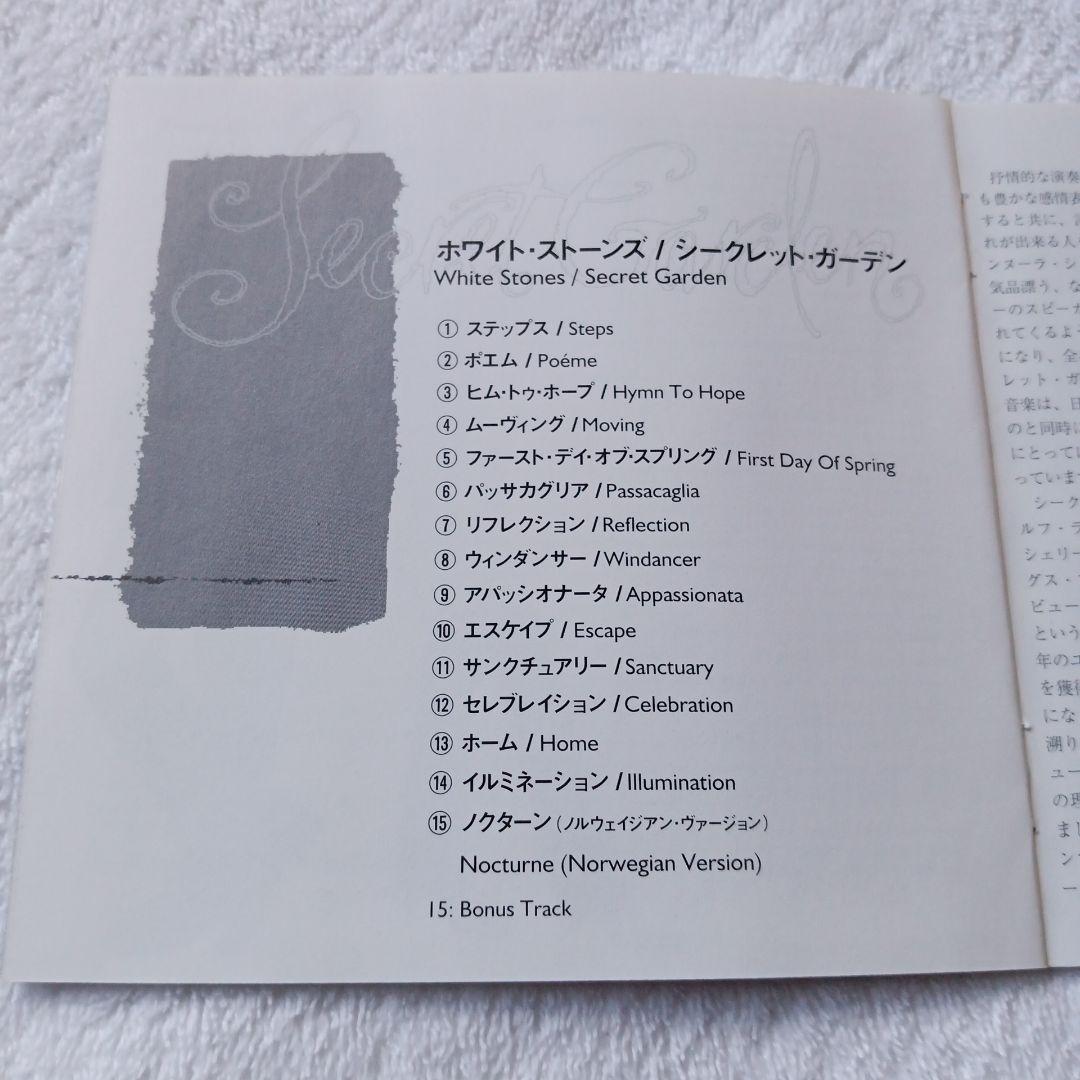 Secret Garden
ホワイト・ストーンズ / シークレット・ガーデン
White Stones / Secret Garden
① ステップス / Steps
② ポエム / Poéme
③ ヒム・トゥ・ホープ / Hymn To Hope
④ ムーヴィング / Moving
⑤ ファースト・デイ・オブ・スプリング / First Day Of Spring
⑥ パッサカグリア / Passacaglia
⑦ リフレクション / Reflection
⑧ ウィンダンサー / Windancer
⑨ アパッシオナータ / Appassionata
⑩ エスケイプ / Escape
⑪ サンクチュアリー / Sanctuary
⑫ セレブレイション / Celebration
⑬ ホーム / Home
⑭ イルミネーション / Illumination
⑮ ノクターン (ノルウェイジアン・ヴァージョン)
Nocturne (Norwegian Version)
15: Bonus Track
抒情的な演奏
も豊かな感情表
すると共に、
れが出来る人
ンヌーラ・シ
気品漂う、な
ーのスピーカ
れてくるよう
になり、全
レット・ガ
音楽は、日
のと同時に
にとって
っていま
シーク
ルフ・ラ
シェリー
グス・
ビュー
という
年のエ
を獲得
にな
溯り
ュー
の理
まし
ン
ー